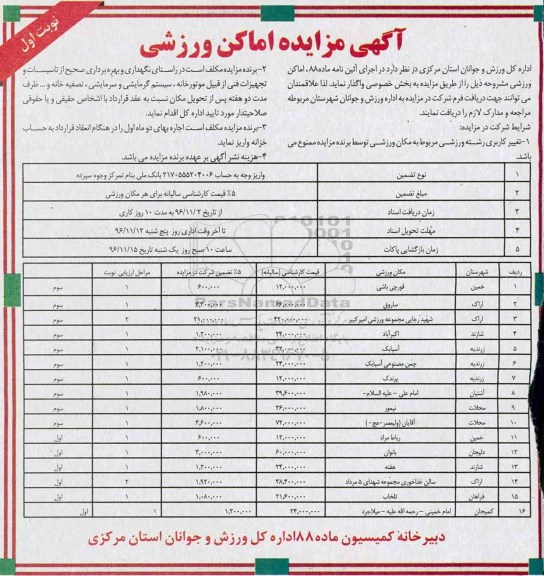 نوبت اول
آگهی مزایده اماکن ورزشی
اداره کل ورزش و جوانان استان مرکزی در نظر دارد در اجرای آئین نامه ماده ۸۸، اماکن
ورزشی مشروحه ذیل را از طریق مزایده به بخش خصوصی واگذار نماید. لذا علاقمندان
می توانند جهت دریافت فرم شرکت در مزایده به اداره ورزش و جوانان شهرستان مربوطه
مراجعه و مدارک لازم را دریافت نمایند.
شرایط شرکت در مزایده:
۱-تغییر کاربری رشته ورزشی مربوط به مکان ورزشی توسط برنده مزایده ممنوع می
باشد.
۲-برنده مزایده مکلف است در راستای نگهداری و بهره برداری صحیح از تاسیسات و
تجهیزات فنی از قبیل موتورخانه، سیستم گرمایشی و سرمایشی، تصفیه خانه و ... ظرف
مدت دو هفته پس از تحویل مکان نسبت به عقد قرارداد با اشخاص حقیقی و یا حقوقی
صلاحیتدار مورد تایید اداره کل اقدام نماید.
۳-برنده مزایده مکلف است اجاره بهای دو ماه اول را در هنگام انعقاد قرارداد به حساب
خزانه واریز نماید.
۴-هزینه نشر آگهی بر عهده برنده مزایده می باشد.
۱ نوع تضمین واریز وجه به حساب ۲۱۷۰۵۵۵۲۰۴۰۰۶ بانک ملی بنام تمرکز وجوه سپرده
۲ مبلغ تضمین ۵٪ قیمت کارشناسی سالیانه برای هر مکان ورزشی
۳ زمان دریافت اسناد از تاریخ ۹۶/۱۱/۲ به مدت ۱۰ روز کاری
۴ مهلت تحویل اسناد تا آخر وقت اداری روز پنج شنبه ۹۶/۱۱/۱۲
۵ زمان بازگشایی پاکات ساعت ۱۰ صبح روز یک شنبه تاریخ ۹۶/۱۱/۱۵
ردیف شهرستان مکان ورزشی قیمت کارشناسی (سالیانه) ۵٪ تضمین شرکت در مزایده مراحل ارزیابی نوبت
۱ خمین قورچی باشی ۱۲,۰۰۰,۰۰۰ ۶۰۰,۰۰۰ ۱ سوم
۲ اراک ساروق ۱ سوم
۳ اراک شهید رجایی مجموعه ورزشی امیرکبیر ۴۲۰,۰۰۰,۰۰۰ ۲۱,۰۰۰,۰۰۰ ۲ سوم
۴ شازند اکبرآباد ۲۴,۰۰۰,۰۰۰ ۱,۲۰۰,۰۰۰ ۱ سوم
۵ زرندیه آسیابک ۲,۱۰۰,۰۰۰ ۱ سوم
۶ زرندیه چمن مصنوعی آسیابک ۲۴,۰۰۰,۰۰۰ ۱,۲۰۰,۰۰۰ ۱ سوم
۷ زرندیه پرندک ۱۲,۰۰۰,۰۰۰ ۶۰۰,۰۰۰ ۱ سوم
۸ آشتیان امام علی - علیه السلام- ۳۹,۶۰۰,۰۰۰ ۱,۹۸۰,۰۰۰ ۱ سوم
۹ محلات نیمور ۳۶,۰۰۰,۰۰۰ ۱,۸۰۰,۰۰۰ ۱ سوم
۱۰ محلات آقایان (ولیعصر-عج-) ۷۲,۰۰۰,۰۰۰ ۳,۶۰۰,۰۰۰ ۱ سوم
۱۱ خمین رباط مراد ۱۲,۰۰۰,۰۰۰ ۶۰۰,۰۰۰ ۱ اول
۱۲ دلیجان بانوان ۶۰,۰۰۰,۰۰۰ ۳,۰۰۰,۰۰۰ ۱ اول
۱۳ شازند هفته ۲۴,۰۰۰,۰۰۰ ۱,۲۰۰,۰۰۰ ۱ اول
۱۴ اراک سالن غذاخوری مجموعه شهدای ۵ مرداد ۳۸,۴۰۰,۰۰۰ ۱,۹۲۰,۰۰۰ ۲ اول
۱۵ فراهان تلخاب ۲۱,۶۰۰,۰۰۰ ۱,۰۸۰,۰۰۰ ۱ اول
۱۶ کمیجان امام خمینی - رحمه الله علیه - میلاجرد ۲۴,۰۰۰,۰۰۰ ۱,۲۰۰,۰۰۰ ۱ اول
ParsNamadData
دبیرخانه کمیسیون ماده ۸۸ اداره کل ورزش و جوانان استان مرکزی